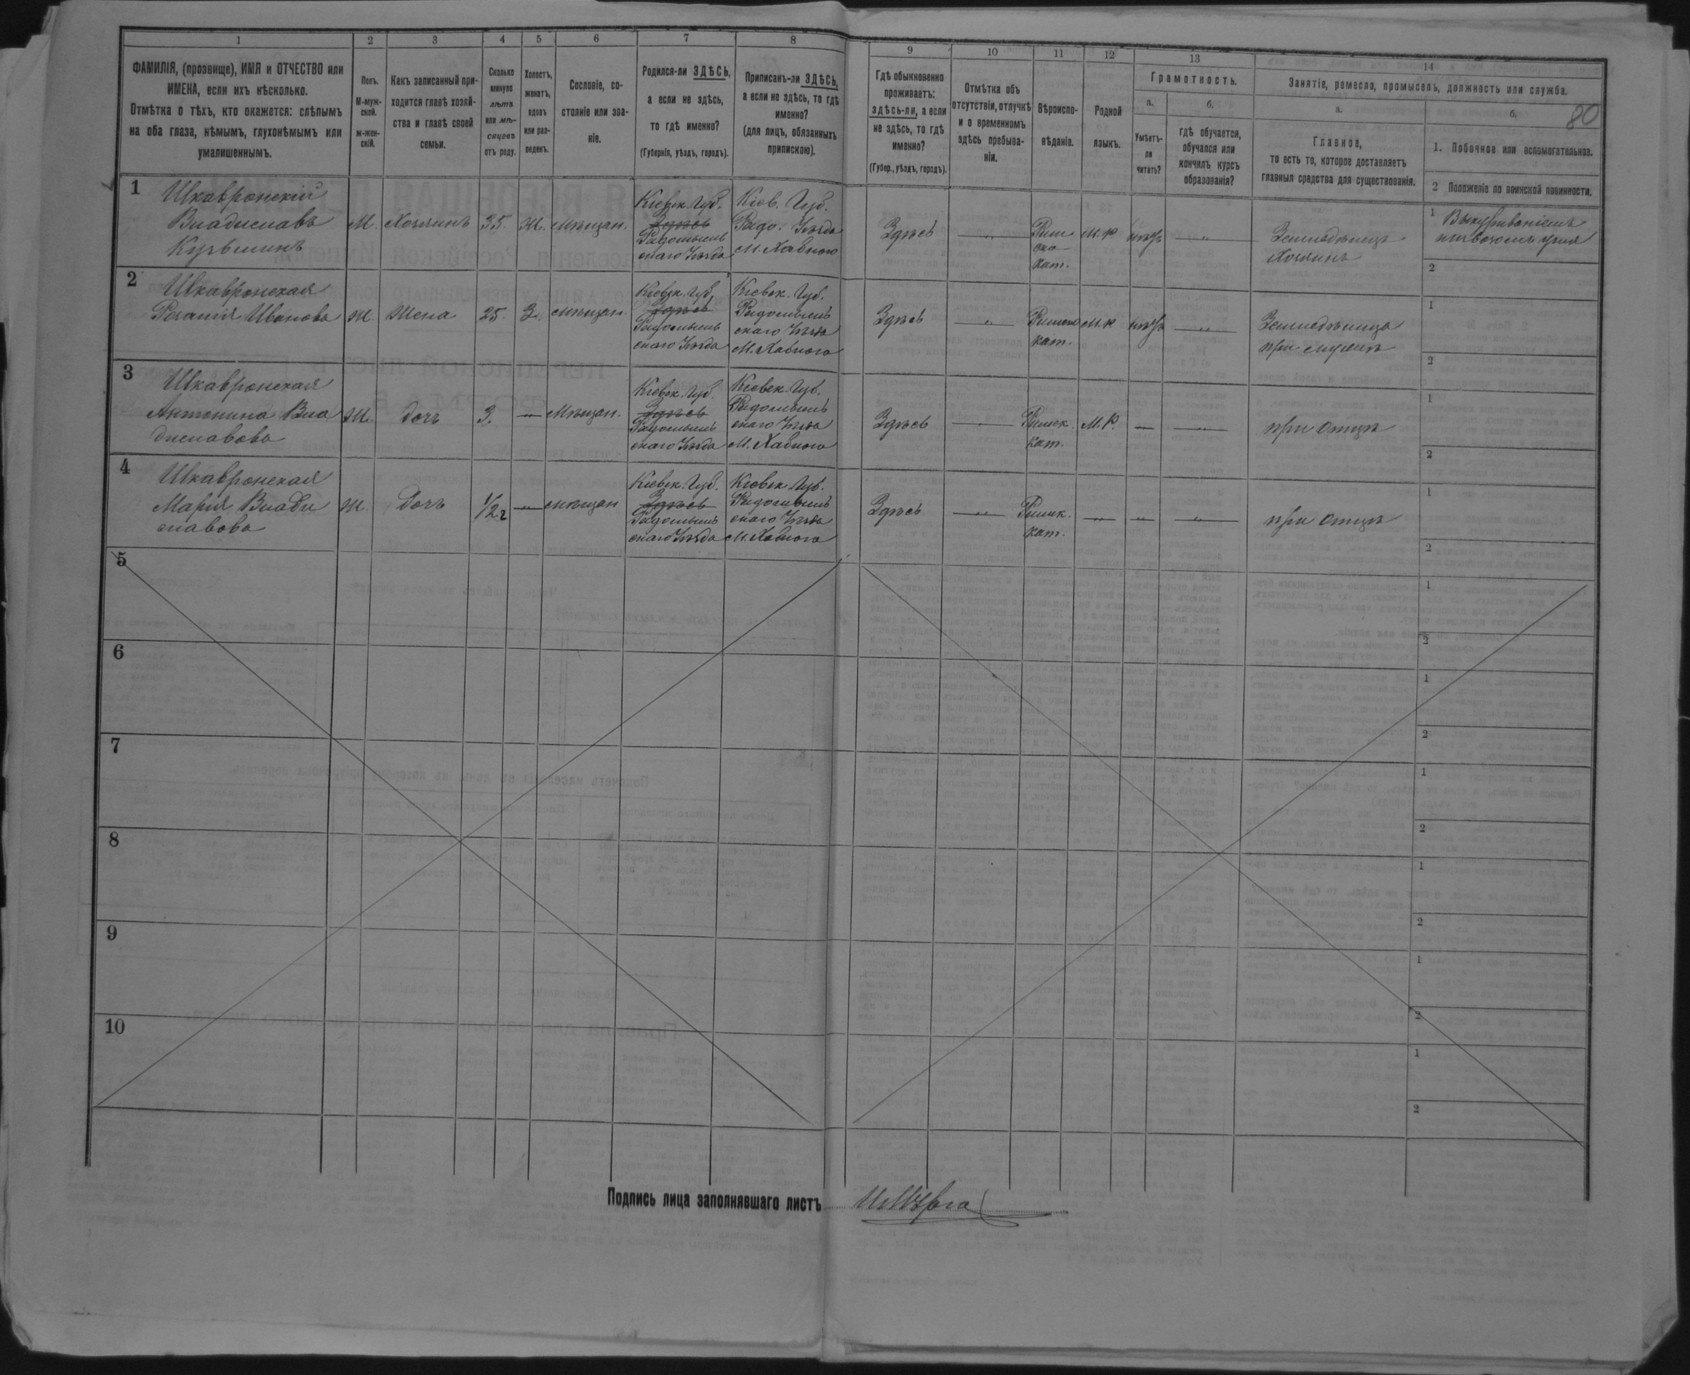 1 2 3 4 5 6 7 8 9 10 11 12 13 14
80
ФАМИЛІЯ, (прозвище), ИМЯ и ОТЧЕСТВО или
ИМЕНА, если ихъ нѣсколько.
Отмѣтка о тѣхъ, кто окажется: слѣпымъ
на оба глаза, нѣмымъ, глухонѣмымъ или
умалишеннымъ.
Полъ.
М-муж-
ской.
ж-жен-
скій.
Какъ записанный при-
ходится главѣ хозяй-
ства и главѣ своей
семьи.
Сколько
минуло
лѣтъ
или мѣ-
сяцевъ
отъ роду.
Холостъ,
женатъ,
вдовъ
или раз-
веденъ.
Сословіе, со-
стояніе или зва-
ніе.
Родился-ли ЗДѢСЬ,
а если не здѣсь,
то гдѣ именно?
(Губернія, уѣздъ, городъ).
Приписанъ-ли ЗДѢСЬ,
а если не здѣсь, то гдѣ
именно?
(для лицъ, обязанныхъ
припискою).
Гдѣ обыкновенно
проживаетъ:
здѣсь-ли, а если
не здѣсь, то гдѣ
именно?
(Губер., уѣздъ, городъ).
Отмѣтка объ
отсутствіи, отлучкѣ
и о временномъ
здѣсь пребыва-
ніи.
Вѣроиспо-
вѣданіе.
Родной
языкъ.
Грамотность.
а.
Умѣетъ-
ли
читать?
б.
гдѣ обучается,
обучался или
кончилъ курсъ
образованія?
Занятіе, ремесло, промыселъ, должность или служба.
а.
Главное,
то есть то, которое доставляетъ
главныя средства для существованія.
б.
1. Побочное или вспомогательное.
2 Положеніе по воинской повинности.
1
Шкавронскій
Владиславъ
М Хозяинъ 35. Ж. мѣщан.
Кіевск. Губ.
Здѣсь
Радомысль
скаго Уѣзда
Кіев. Губ.
Радо. Уѣзда
М. Хабного
Здѣсь — „ —
Рим
ско
кат.
— „ —
Хозяинъ
1
2
2
Шкавронская
Ивановa
Ж. Жена 25. З. мѣщан.
Кіевск. Губ.
Здѣсь
Радомысль
скаго Уѣзда
Кіевск. Губ.
Радомысль
скаго Уѣзда
М. Хабного
Здѣсь — „ —
Римско
кат.
— „ —
при мужѣ
1
2
3
Шкавронская
Антонина Вла
диславова
Ж. Дочь 3. — Мѣщан.
Кіевск. Губ.
Здѣсь
Радомысль
скаго Уѣзда
Кіевск. Губ.
Радомысль
скаго Уѣзда
М. Хабного
Здѣсь — „ —
Римск.
кат.
— — „ —
при отцѣ
1
2
4
Шкавронская
Марія Влади
славова
Ж. Дочь 1/2 г — „ — мѣщан
Кіевск. Губ.
Здѣсь
Радомысль
скаго Уѣзда
Кіевск. Губ.
Радомысль
скаго Уѣзда
М. Хабного
Здѣсь — „ —
Римск.
кат.
— „ — — „ — — „ —
при отцѣ
1
2
5
1
2
6
1
2
7
1
2
8
1
2
9
1
2
10
1
2
Подпись лица заполнявшаго листъ